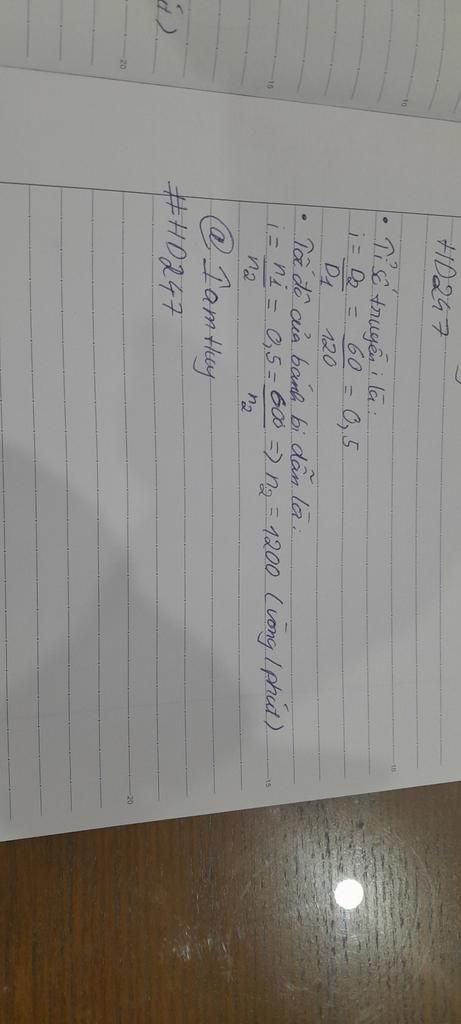 HD247
• Tỉ số truyền i là:
i = D2/D1 = 60/120 = 0,5
• Tốc độ của bánh bị dẫn là:
i = n1/n2 = 0,5 = 600/n2 => n2 = 1200 (vòng/phút)
@Tamthuy
#HD247
20
15
10
10
15
20